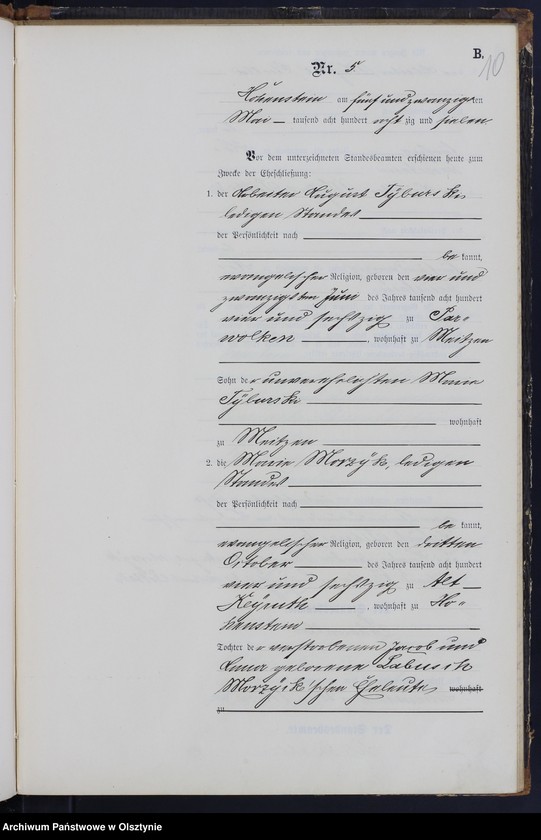 B.
10
Nr. 5
Hohenstein am fünf und zwanzigsten
Mai tausend acht hundert acht zig und sieben
Vor dem unterzeichneten Standesbeamten erschienen heute zum
Zwecke der Eheschließung:
1. der Arbeiter August Tyburski
ledigen Standes
der Persönlichkeit nach
be kannt,
evangelischer Religion, geboren den vier und
zwanzigsten Juni des Jahres tausend acht hundert
vier und sechszig zu Par-
wolken, wohnhaft zu Meitzen
Sohn der unverehelichten Marie
Tyburski
wohnhaft
zu Meitzen
2. die Marie Morzyk, ledigen
Standes
der Persönlichkeit nach
be kannt,
evangelischer Religion, geboren den dritten
October des Jahres tausend acht hundert
vier und sechszig zu Alt
Keykuth, wohnhaft zu Ho-
henstein
Tochter der verstorbenen Jacob und
geborene
Morzyk'schen Eheleute wohnhaft
zu
Archiwum Państwowe w Olsztynie